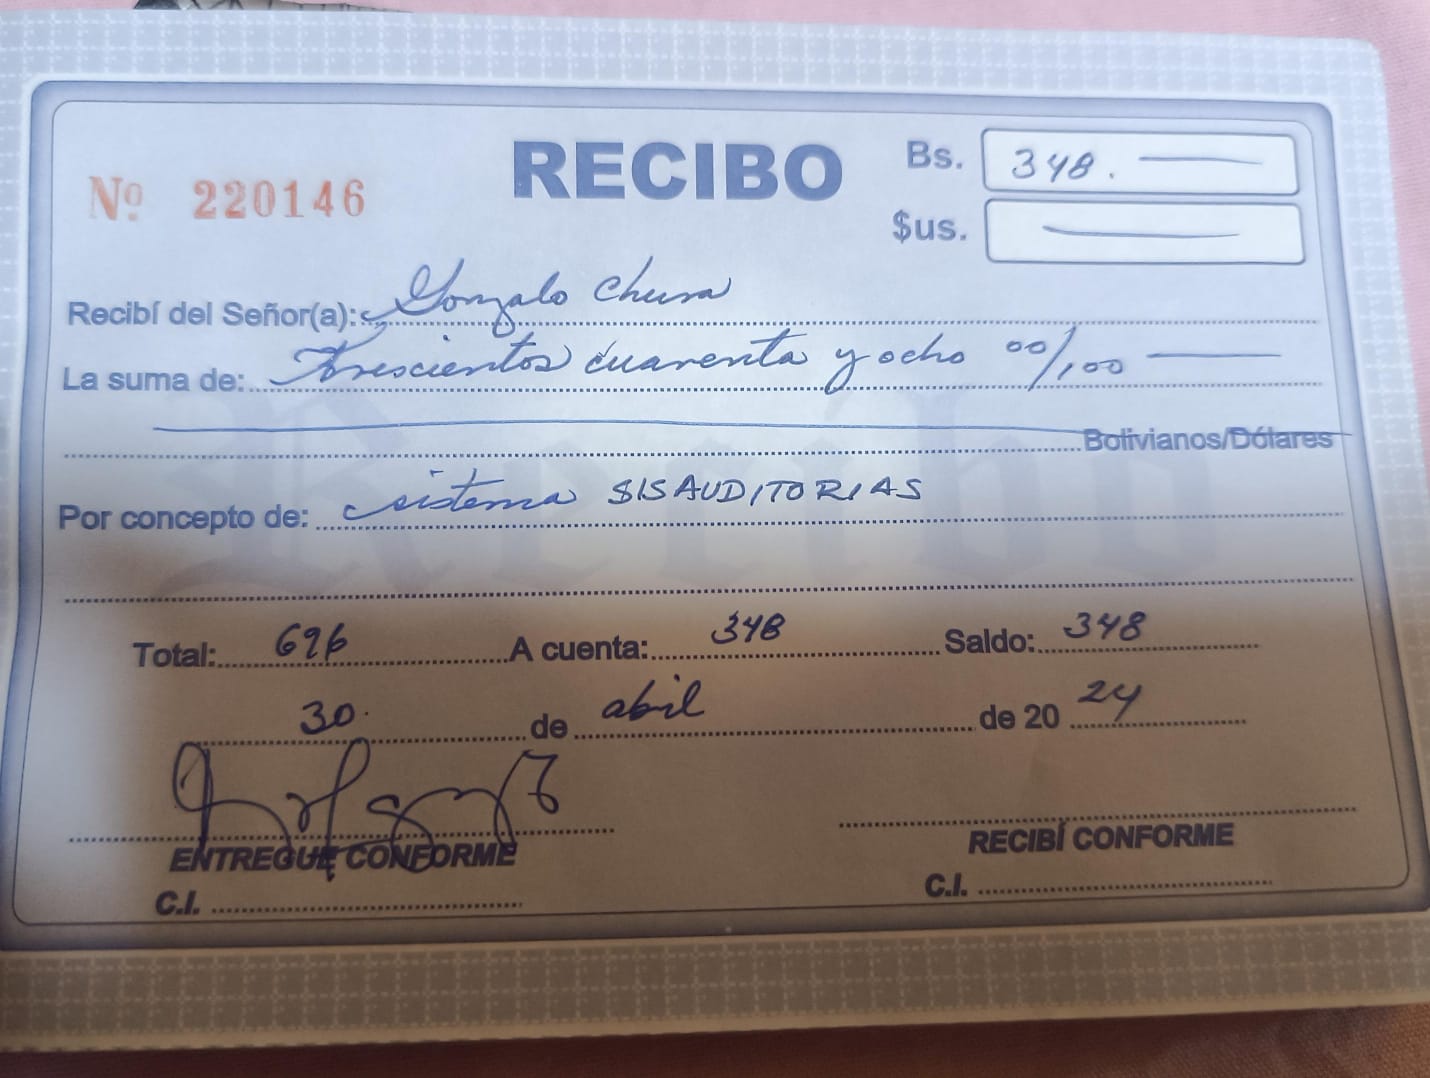 RECIBO
Bs. 348.
Nº 220146
$us.
Recibí del Señor(a): Gonzalo Chura
La suma de: Trescientos cuarenta y ocho 00/100
Bolivianos/Dólares
Por concepto de: sistema SISAUDITORIAS
Recibo
Total: 696 A cuenta: 348 Saldo: 348
30. de abril de 2024
ENTREGUE CONFORME
RECIBÍ CONFORME
C.I.
C.I.